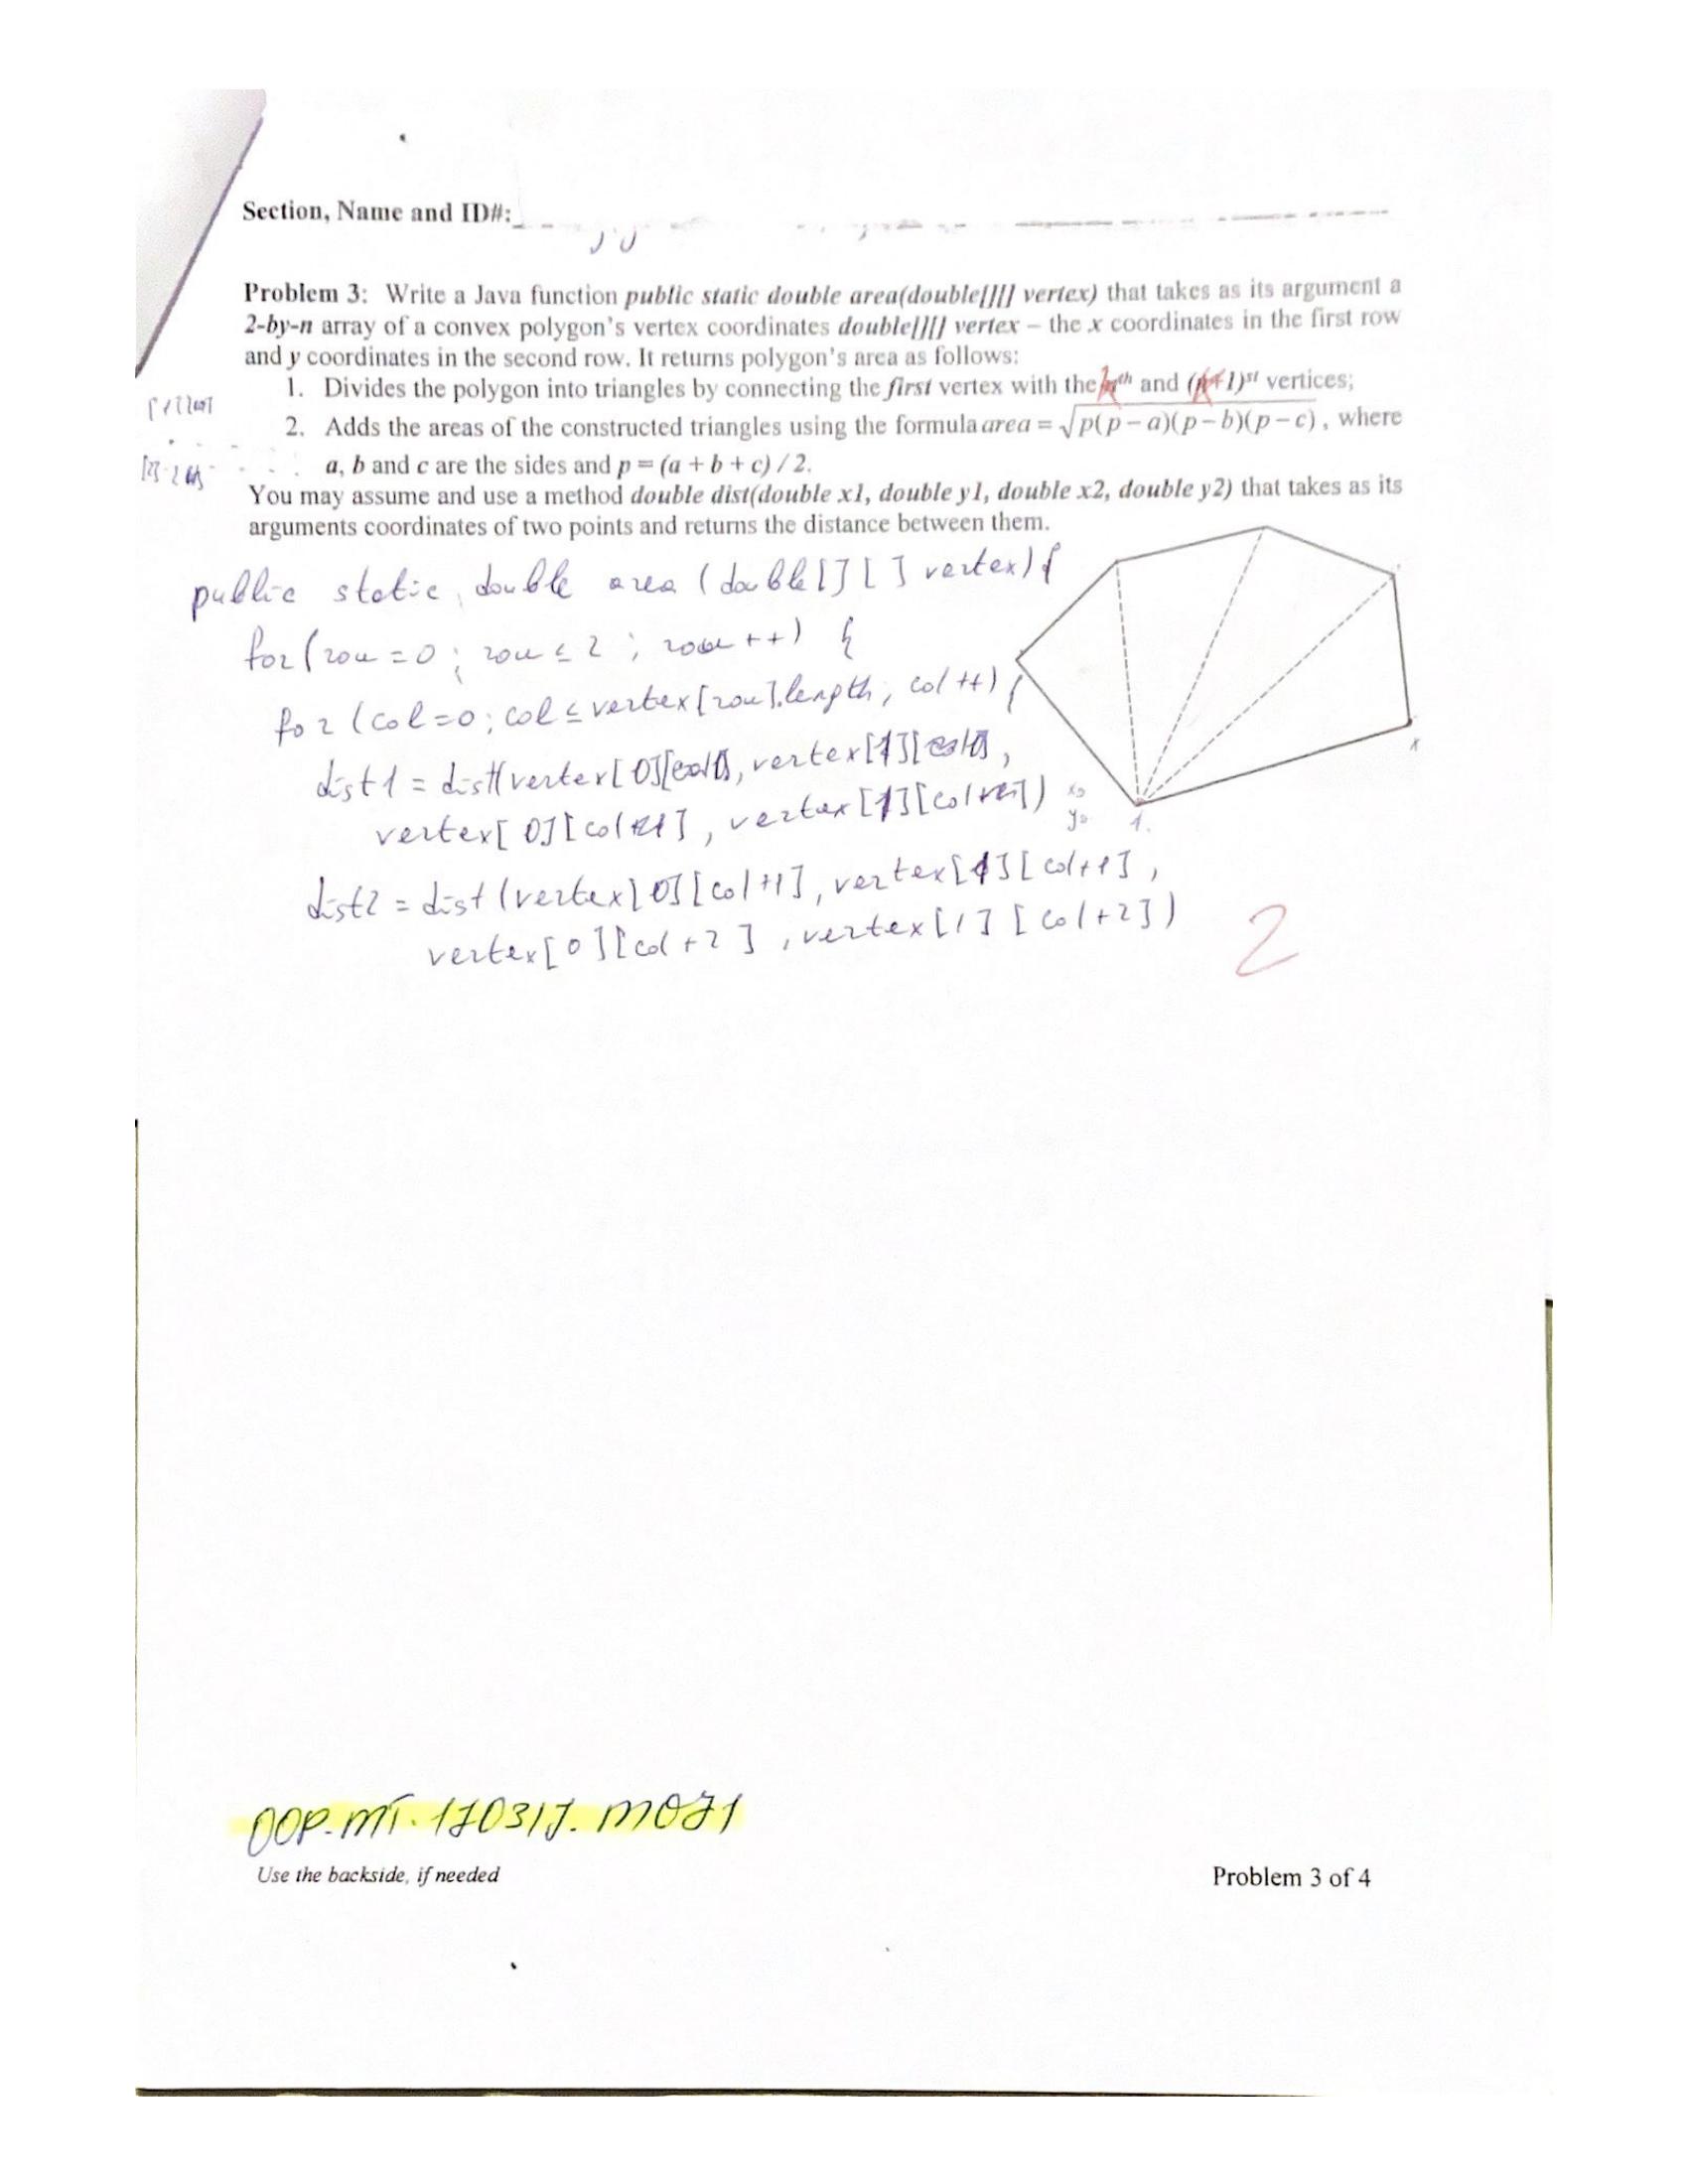 Section, Name and ID#:
Problem 3: Write a Java function public static double area(double[][] vertex) that takes as its argument a
2-by-n array of a convex polygon's vertex coordinates double[][] vertex – the x coordinates in the first row
and y coordinates in the second row. It returns polygon's area as follows:
1. Divides the polygon into triangles by connecting the first vertex with the th and ( +1)st vertices;
2. Adds the areas of the constructed triangles using the formula area = √p(p – a)(p – b)(p – c) , where
a, b and c are the sides and p = (a + b + c) / 2.
You may assume and use a method double dist(double x1, double y1, double x2, double y2) that takes as its
arguments coordinates of two points and returns the distance between them.
public static double area (double[][] vertex) {
for (row = 0 ; row ≤ 2 ; row ++) {
for (col=0; col ≤ vertex[row].length; col ++) {
dist1 = dist(vertex[0][col], vertex[1][col],
vertex[0][col+1], vertex[1][col+1])
x0
y0
1.
dist2 = dist (vertex[0][col+1], vertex[1][col+1],
vertex[0][col+2], vertex[1][col+2])
2
OOP.MT.170317.M071
Use the backside, if needed
Problem 3 of 4